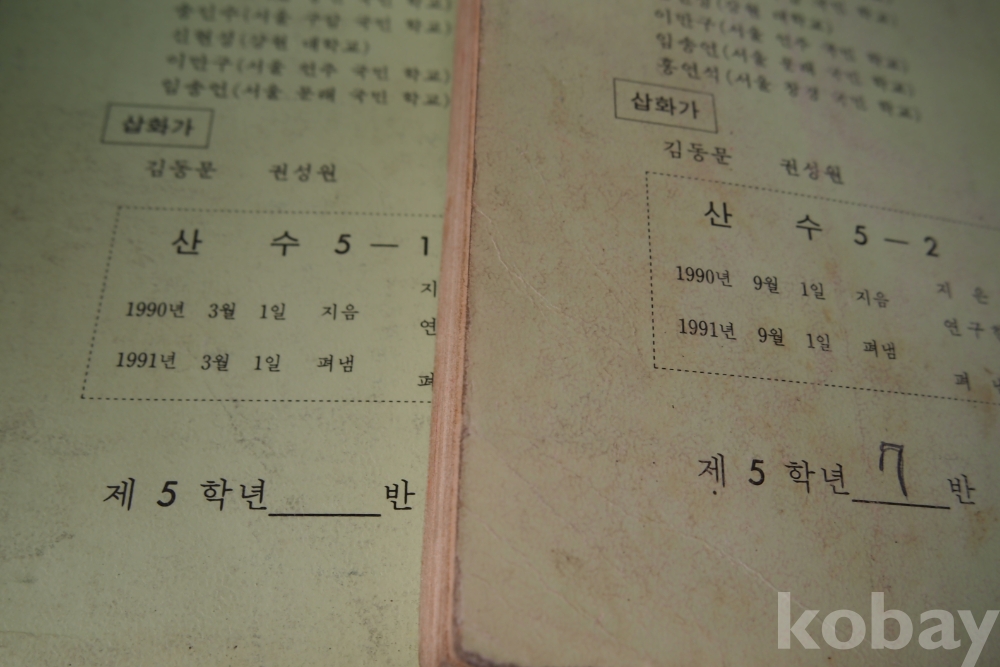 송인수(서울 구암 국민 학교)
신현성(강원 대학교)
이만구(서울 언주 국민 학교)
임송언(서울 문래 국민 학교)
삽화가
김동문 권성원
산 수 5－1
지
1990년 3월 1일 지음
연
1991년 3월 1일 펴냄
펴
제 5 학년 반
이만구(서울 언주 국민 학교)
임송언(서울 문래 국민 학교)
홍연석(서울 국민 학교)
삽화가
김동문 권성원
산 수 5－2
1990년 9월 1일 지음
지 은
연구
1991년 9월 1일 펴냄
펴
제 5 학년 7 반
kobay